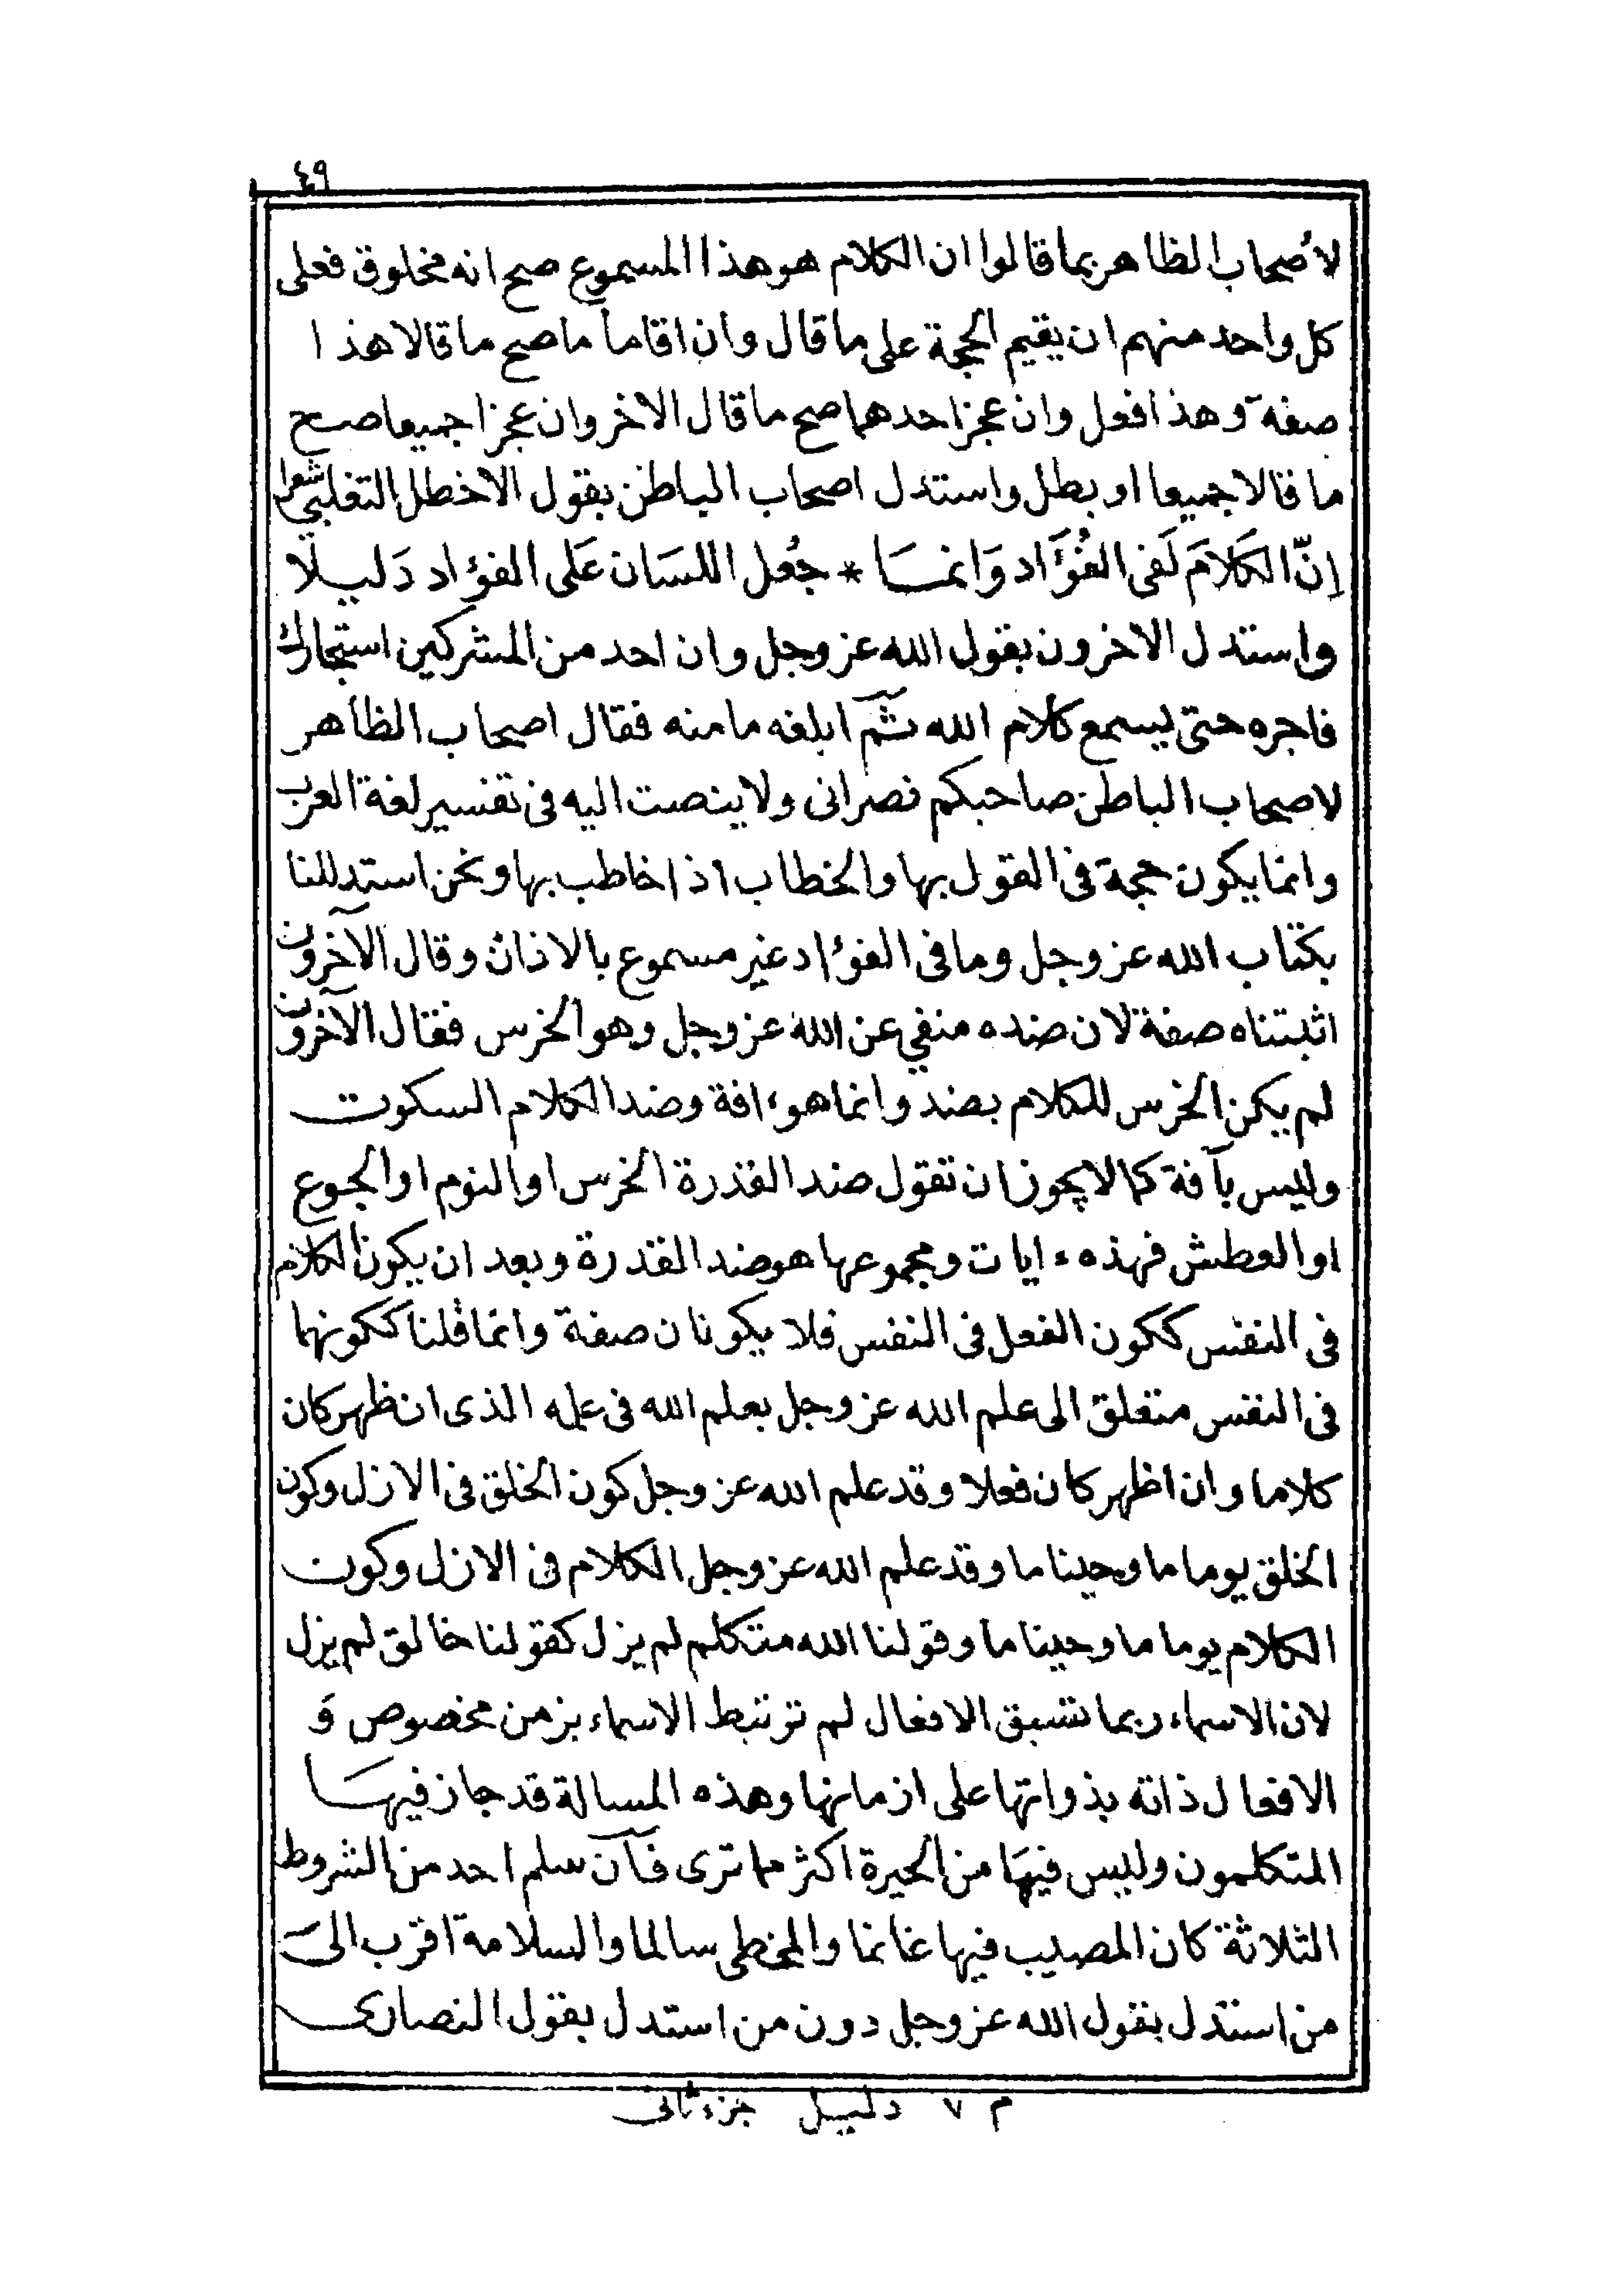 ٤٩
لأصحاب الظاهر بما قالوا ان الكلام هو هذا المسموع صح انه مخلوق فعلى
كل واحد منهم ان يقيم الحجة على ما قال وان اقاما ما صح ما قالا هذا
صفة وهذا فعل وان عجز احدهما صح ما قال الاخر وان عجزا جميعا صح
ما قالا جميعا او بطل واستدل اصحاب الباطن بقول الاخطل التغلبي شعرا
اِنّ الكَلامَ لَفى الفُؤَاد وَانمسَا * جُعل اللسَان عَلى الفؤاد دَليلا
واستدل الاخرون بقول الله عز وجل وان احد من المشركين استجارك
فاجره حتى يسمع كلام الله ثمّ ابلغه مامنه فقال اصحاب الظاهر
لاصحاب الباطن صاحبكم نصرانى ولا ينصت اليه فى تفسير لغة العرب
وانما يكون حجة فى القول بها والخطاب اذا خاطب بها ونحن استدللنا
بكتاب الله عز وجل وما فى الفؤاد غير مسموع بالاذان وقال الآخرون
اثبتناه صفة لان ضده منفي عن الله عز وجل وهو الخرس فقال الآخرون
لم يكن الخرس للكلام بضد وانما هو ءافة وضد الكلام السكوت
وليس بآفة كما لا يجوز ان تقول ضد القدرة الخرس او النوم او الجوع
او العطش فهذه ءايات ومجموعها هو ضد القدرة وبعد ان يكون الكلام
فى النفس ككون الفعل فى النفس فلا يكونان صفة وانما قلنا ككونهما
فى النفس متعلق الى علم الله عز وجل بعلم الله فى علمه الذى ان ظهر كان
كلاما وان اظهر كان فعلا وقد علم الله عز وجل كون الخلق فى الازل وكون
الخلق يوما ما وحينا ما وقد علم الله عز وجل الكلام فى الازل وكون
الكلام يوما ما وحينا ما وقولنا الله متكلم لم يزل كقولنا خالق لم يزل
لان الاسماء ربما تسبق الافعال لم ترتبط الاسماء بزمن مخصوص وَ
الافعال ذاته بذواتها على ازمانها وهذه المسالة قد جاز فيهسَا
المتكلمون وليس فيهَا من الحيرة اكثر مما ترى فآن سلم احد من الشروط
الثلاثة كان المصيب فيها غانما والمخطى سالما والسلامة اقرب الى
من استدل بقول الله عز وجل دون من استدل بقول النصارى
م ٧ دليل جزء ثانى